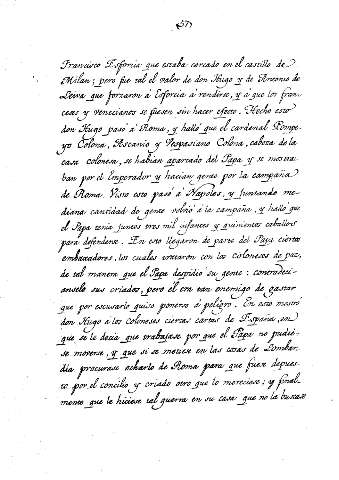 57
Francisco Esforcia que estaba cercado en el castillo de
Milan; pero fue tal el valor de don Hugo y de Antonio de
Leiva que forzaron á Esforcia á rendirse, y á que los fran-
ceses y venecianos se fuesen sin hacer efecto. Hecho esto
don Hugo pasó á Roma, y halló que el cardenal Pompe-
yo Colona, Ascanio y Vespasiano Colona, cabeza de la
casa colonesa, se habian apartado del Papa y se mostra-
ban por el Emperador y hacian gente por la campaña
de Roma. Visto esto pasó á Napoles, y juntando me-
diana cantidad de gente volvió á la campaña, y halló que
el Papa tenia juntos tres mil infantes y quinientos caballos
para defenderse. En esto llegaron de parte del Papa ciertos
embaxadores, los cuales trataron con los Coloneses de paz,
de tal manera que el Papa despidió su gente: contradici-
anselo sus criados, pero él era tan enemigo de gastar
que por escusarlo quiso ponerse á peligro. En esto mostró
don Hugo á los Coloneses ciertas cartas de España, en
que se le decia que trabajase por que el Papa no pudie-
se moverse, y que si se metiese en las cosas de Lombar-
dia procurase echarlo de Roma para que fuese depues-
to por el concilio y criado otro que lo mereciese; y final-
mente que le hiciese tal guerra en su casa que no la buscase